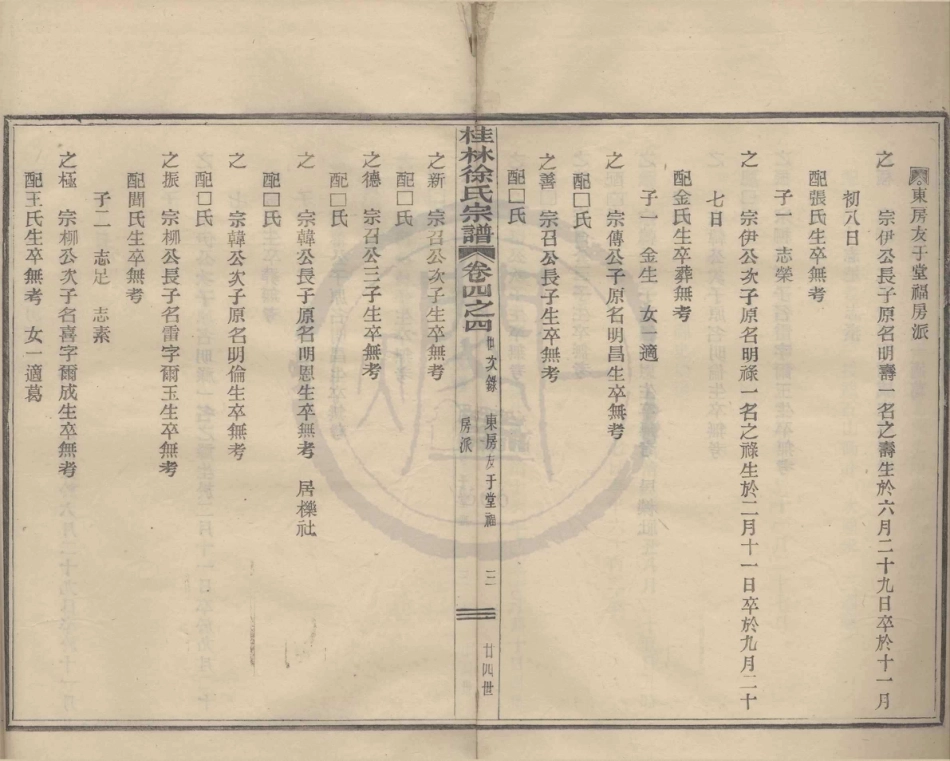 東房友于堂福房派
之　宗伊公長子原名明壽一名之壽生於六月二十九日卒於十一月
初八日
配張氏生卒無考
子一　志榮
之　宗伊公次子原名明祿一名之祿生於二月十一日卒於九月二十
七日
配金氏生卒葬無考
子一　金生　女一適
之　宗傳公子原名明昌生卒無考
配□氏
之善　宗召公長子生卒無考
配□氏
桂林徐氏宗譜　卷四之四　世次錄　東房友于堂福
房派　三　廿四世
之新　宗召公次子生卒無考
配□氏
之德　宗召公三子生卒無考
配□氏
之　宗韓公長子原名明恩生卒無考　居櫟社
配□氏
之　宗韓公次子原名明倫生卒無考
配□氏
之振　宗柳公長子名雷字爾玉生卒無考
配聞氏生卒無考
子二　志足　志素
之極　宗柳公次子名喜字爾成生卒無考
配王氏生卒無考　女一適葛